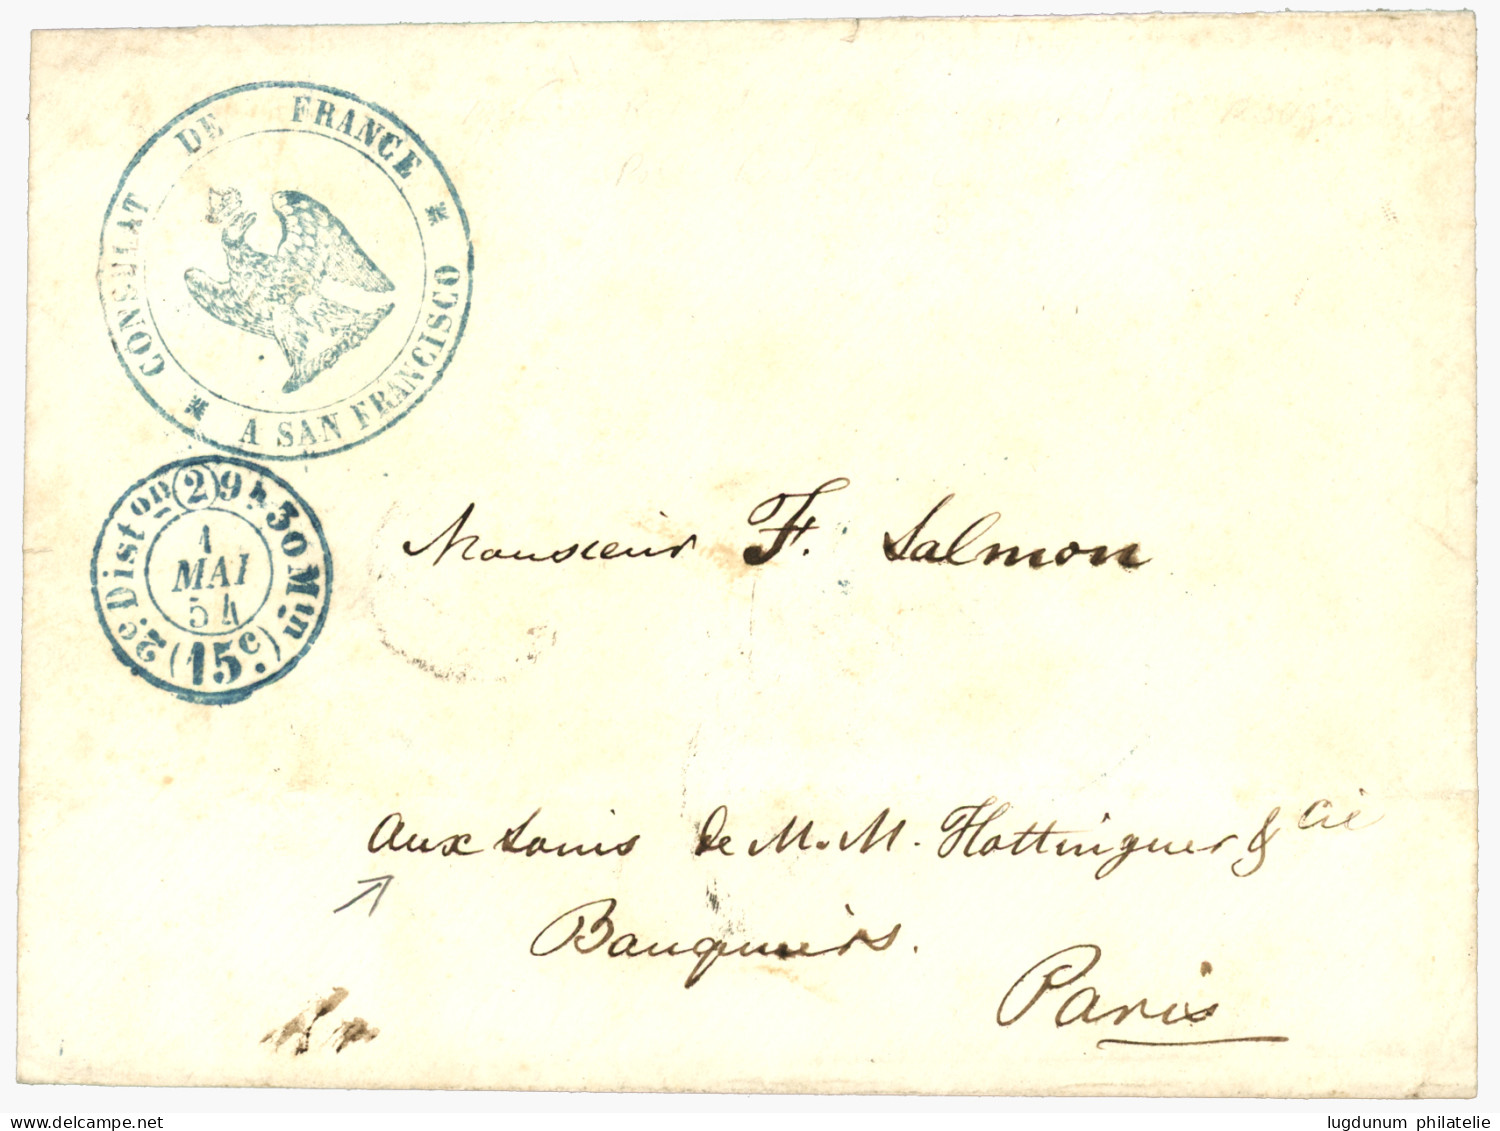 CONSULAT DE FRANCE
* A SAN FRANCISCO *
2e. Diston (2) 9h.30Mn
1
MAI
54
(15c.)
Monsieur F. Salmon
aux soins de M. M. Hottinguer & Cie
Banquiers.
Paris
delcampe.net
lugdunum philatelie